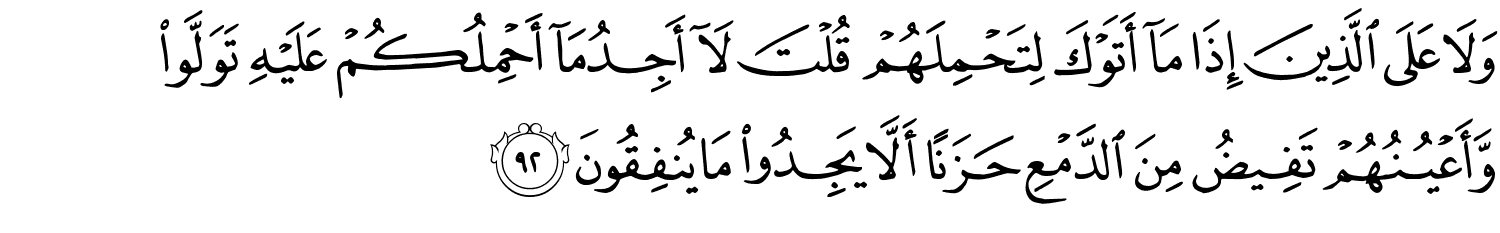 وَلَا عَلَى ٱلَّذِينَ إِذَا مَآ أَتَوْكَ لِتَحْمِلَهُمْ قُلْتَ لَآ أَجِدُ مَآ أَحْمِلُكُمْ عَلَيْهِ تَوَلَّوا۟
وَّأَعْيُنُهُمْ تَفِيضُ مِنَ ٱلدَّمْعِ حَزَنًا أَلَّا يَجِدُوا۟ مَا يُنفِقُونَ ٩٢